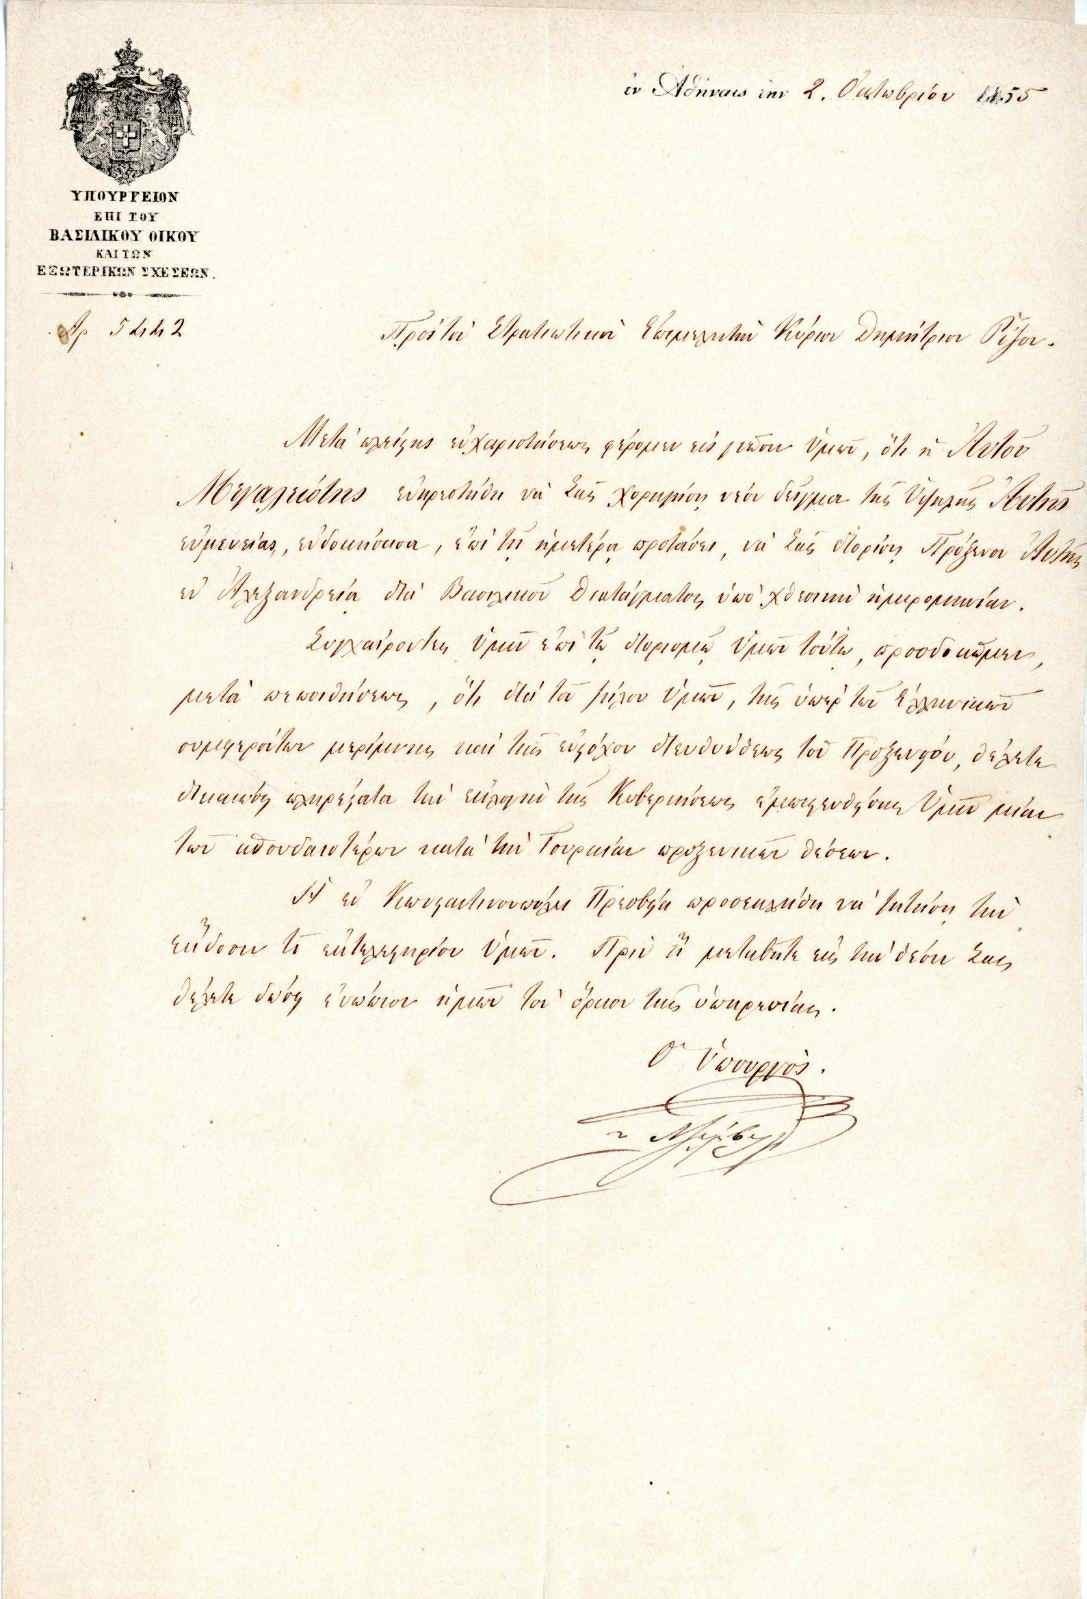 ἐν Ἀθήναις τὴν 2. Ὀκτωβρίου 1855
ΥΠΟΥΡΓΕΙΟΝ
ΕΠΙ ΤΟΥ
ΒΑΣΙΛΙΚΟΥ ΟΙΚΟΥ
ΚΑΙ ΤΩΝ
ΕΞΩΤΕΡΙΚΩΝ ΣΧΕΣΕΩΝ.
Ἀρ 5442
Πρὸς τὸν Στρατιωτικὸν Ἐπιμελητὴν Κύριον Δημήτριον Ῥίζον.
Μετὰ πλείστης εὐχαριστήσεως φέρομεν εἰς γνῶσιν Ὑμῶν, ὅτι ἡ Αὐτοῦ
Μεγαλειότης εὐηρεστήθη νὰ Σᾶς χορηγήσῃ νέον δεῖγμα τῆς Ὑψηλῆς Αὐτῆς
εὐμενείας, εὐδοκήσασα, ἐπὶ τῇ ἡμετέρᾳ προτάσει, νὰ Σᾶς διορίσῃ Πρόξενον Αὐτῆς
ἐν Ἀλεξανδρείᾳ διὰ Βασιλικοῦ Διατάγματος ὑπὸ χθεσινὴν ἡμερομηνίαν.
Συγχαίροντες Ὑμῖν ἐπὶ τῷ διορισμῷ Ὑμῶν τούτῳ, προσδοκῶμεν,
μετὰ πεποιθήσεως, ὅτι διὰ τοῦ ζήλου Ὑμῶν, τῆς ὑπὲρ τῶν Ἑλληνικῶν
συμφερόντων μερίμνης καὶ τῆς εὐστόχου διευθύνσεως τοῦ Προξενείου, θέλετε
δικαιώσῃ πληρέστατα τὴν ἐκλογὴν τῆς Κυβερνήσεως ἐμπιστευθείσης Ὑμῖν μίαν
τῶν σπουδαιοτέρων κατὰ τὴν Τουρκίαν προξενικῶν θέσεων.
Ἡ ἐν Κωνσταντινουπόλει Πρεσβεία προσεκλήθη νὰ ζητήσῃ τὴν
ἔκδοσιν τοῦ ἐκτελεστηρίου Ὑμῶν. Πρὶν ἢ μεταβῆτε εἰς τὴν θέσιν Σας
θέλετε δώσῃ ἐνώπιον ἡμῶν τὸν ὅρκον τῆς ὑπηρεσίας.
Ὁ Ὑπουργός.